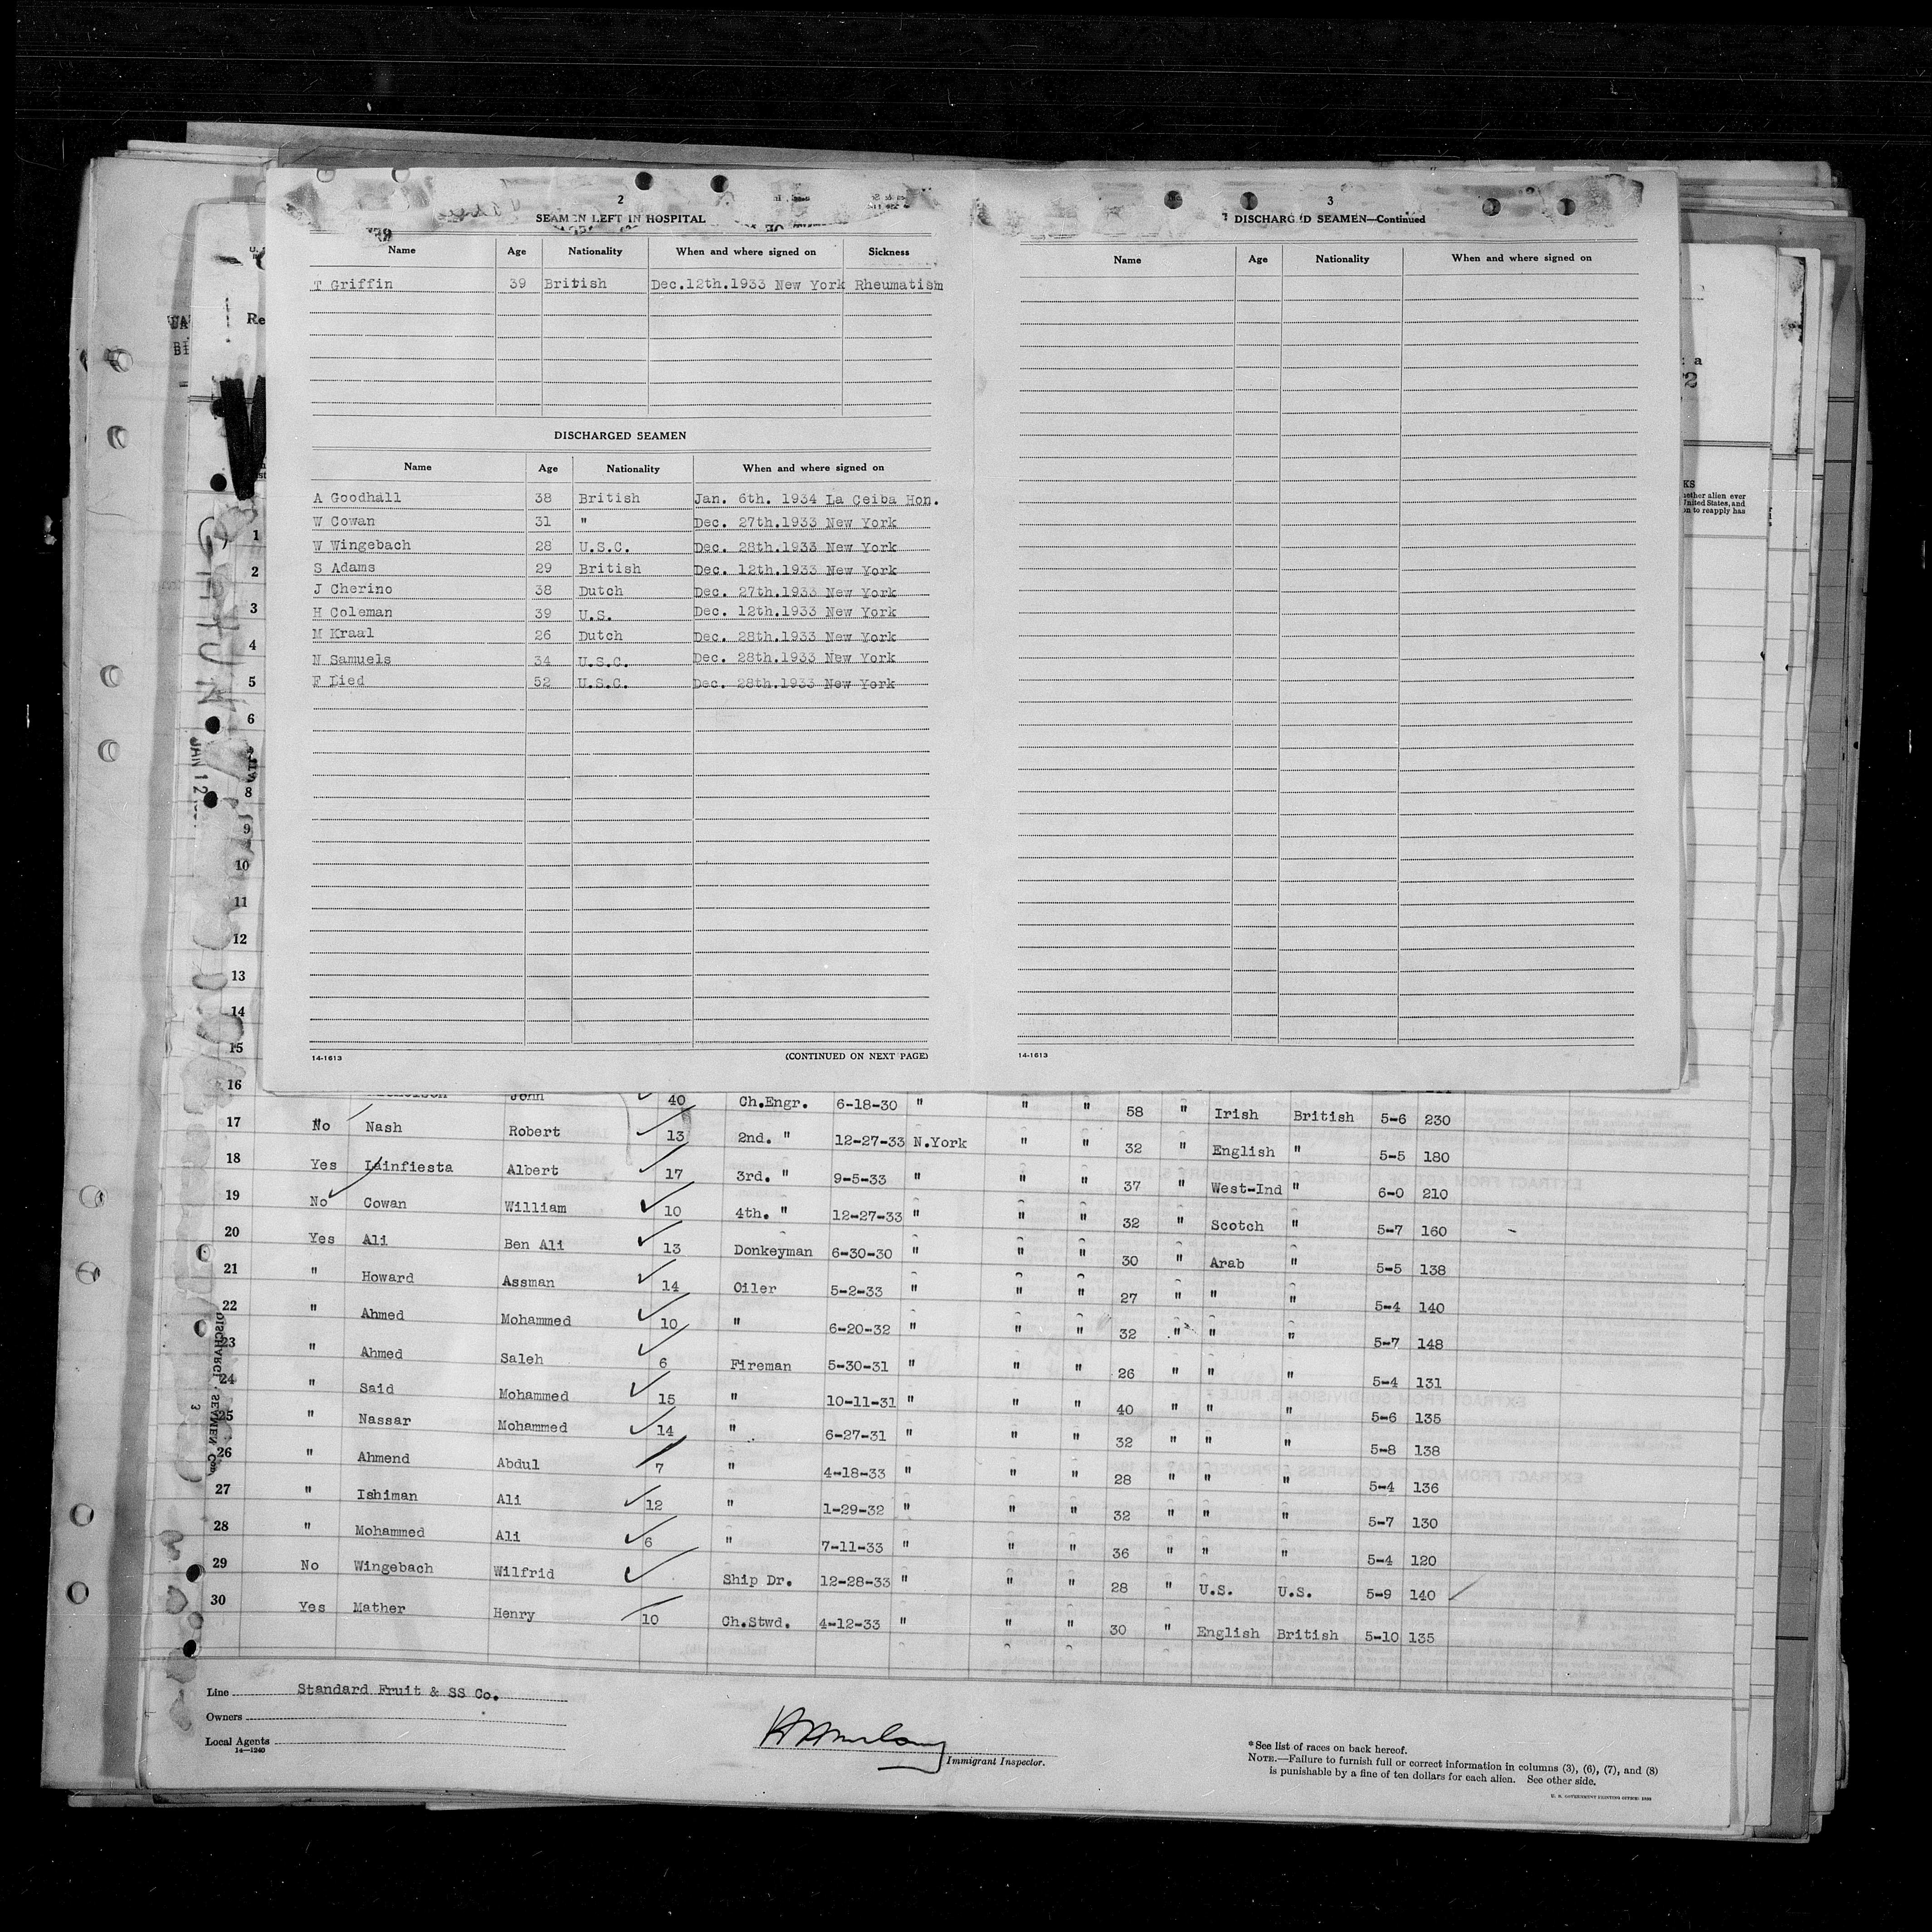 2
SEAMEN LEFT IN HOSPITAL
Name Age Nationality When and where signed on Sickness
T Griffin 39 British Dec.12th.1933 New York Rheumatism
DISCHARGED SEAMEN
Name Age Nationality When and where signed on
A Goodhall 38 British Jan. 6th. 1934 La Ceiba Hon.
W Cowan 31 " Dec. 27th.1933 New York
W Wingebach 28 U.S.C. Dec. 28th.1933 New York
S Adams 29 British Dec. 12th.1933 New York
J Cherino 38 Dutch Dec. 27th.1933 New York
H Coleman 39 U.S. Dec. 12th.1933 New York
M Kraal 26 Dutch Dec. 28th.1933 New York
N Samuels 34 U.S.C. Dec. 28th.1933 New York
F Lied 52 U.S.C. Dec. 28th.1933 New York
14-1613 (CONTINUED ON NEXT PAGE)
3
DISCHARGED SEAMEN—Continued
Name Age Nationality When and where signed on
14-1613
Re
KS
1
2
3
4
5
6
8
9
10
11
12
13
14
15
16 John 40 Ch.Engr. 6-18-30 " " " 58 " Irish British 5-6 230
17 No Nash Robert 13 2nd. " 12-27-33 N.York " " 32 " English " 5-5 180
18 Yes Lainfiesta Albert 17 3rd. " 9-5-33 " " " 37 " West-Ind " 6-0 210
19 No Cowan William 10 4th. " 12-27-33 " " " 32 " Scotch " 5-7 160
20 Yes Ali Ben Ali 13 Donkeyman 6-30-30 " " " 30 " Arab " 5-5 138
21 " Howard Assman 14 Oiler 5-2-33 " " " 27 " " " 5-4 140
22 " Ahmed Mohammed 10 " 6-20-32 " " " 32 " " " 5-7 148
23 " Ahmed Saleh 6 Fireman 5-30-31 " " " 26 " " " 5-4 131
24 " Said Mohammed 15 " 10-11-31 " " " 40 " " " 5-6 135
25 " Nassar Mohammed 14 " 6-27-31 " " " 32 " " " 5-8 138
26 " Ahmend Abdul 7 " 4-18-33 " " " 28 " " " 5-4 136
27 " Ishiman Ali 12 " 1-29-32 " " " 32 " " " 5-7 130
28 " Mohammed Ali 6 " 7-11-33 " " " 36 " " " 5-4 120
29 No Wingebach Wilfrid Ship Dr. 12-28-33 " " " 28 " U.S. U.S. 5-9 140
30 Yes Mather Henry 10 Ch.Stwd. 4-12-33 " " " 30 " English British 5-10 135
Line Standard Fruit & SS Co.
Owners
Local Agents
14—1240
Immigrant Inspector.
*See list of races on back hereof.
NOTE.—Failure to furnish full or correct information in columns (3), (6), (7), and (8)
is punishable by a fine of ten dollars for each alien. See other side.